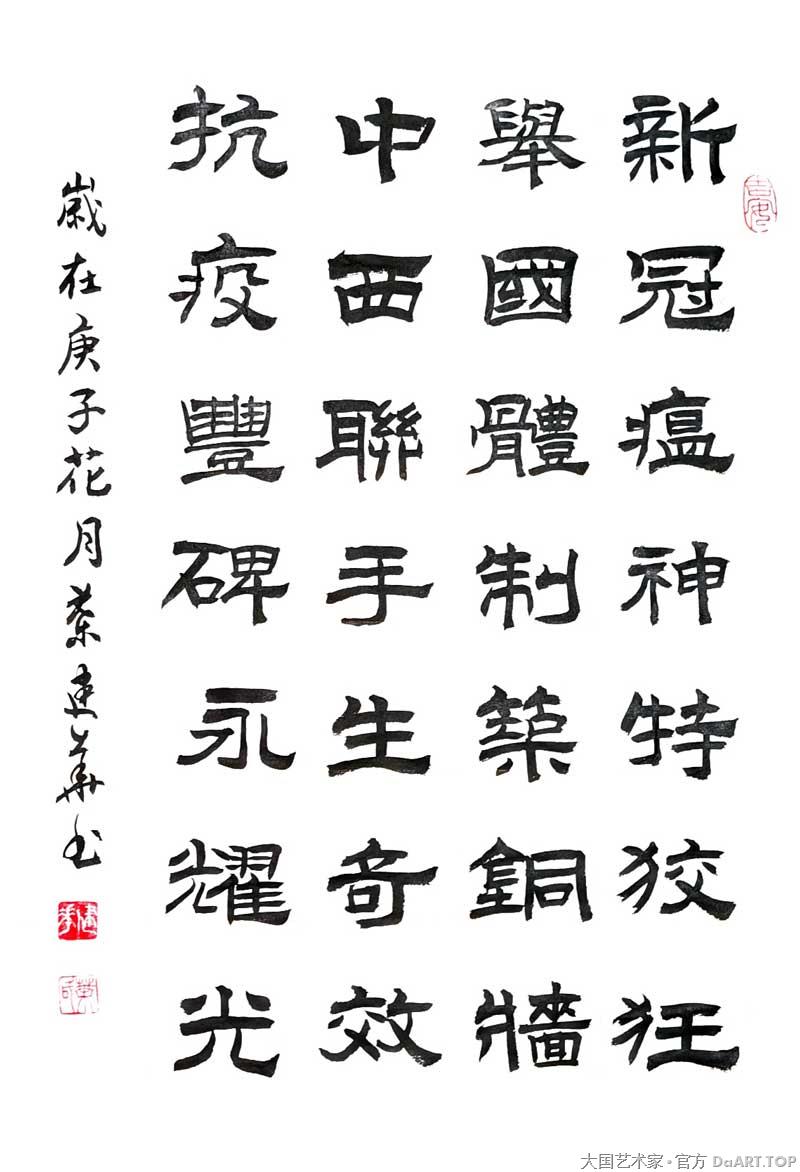 新冠瘟神特狡狂
舉國體制築銅牆
中西聯手生奇效
抗疫豐碑永耀光
歲在庚子花月蔡建華书
大国艺术家·官方 DaART.TOP